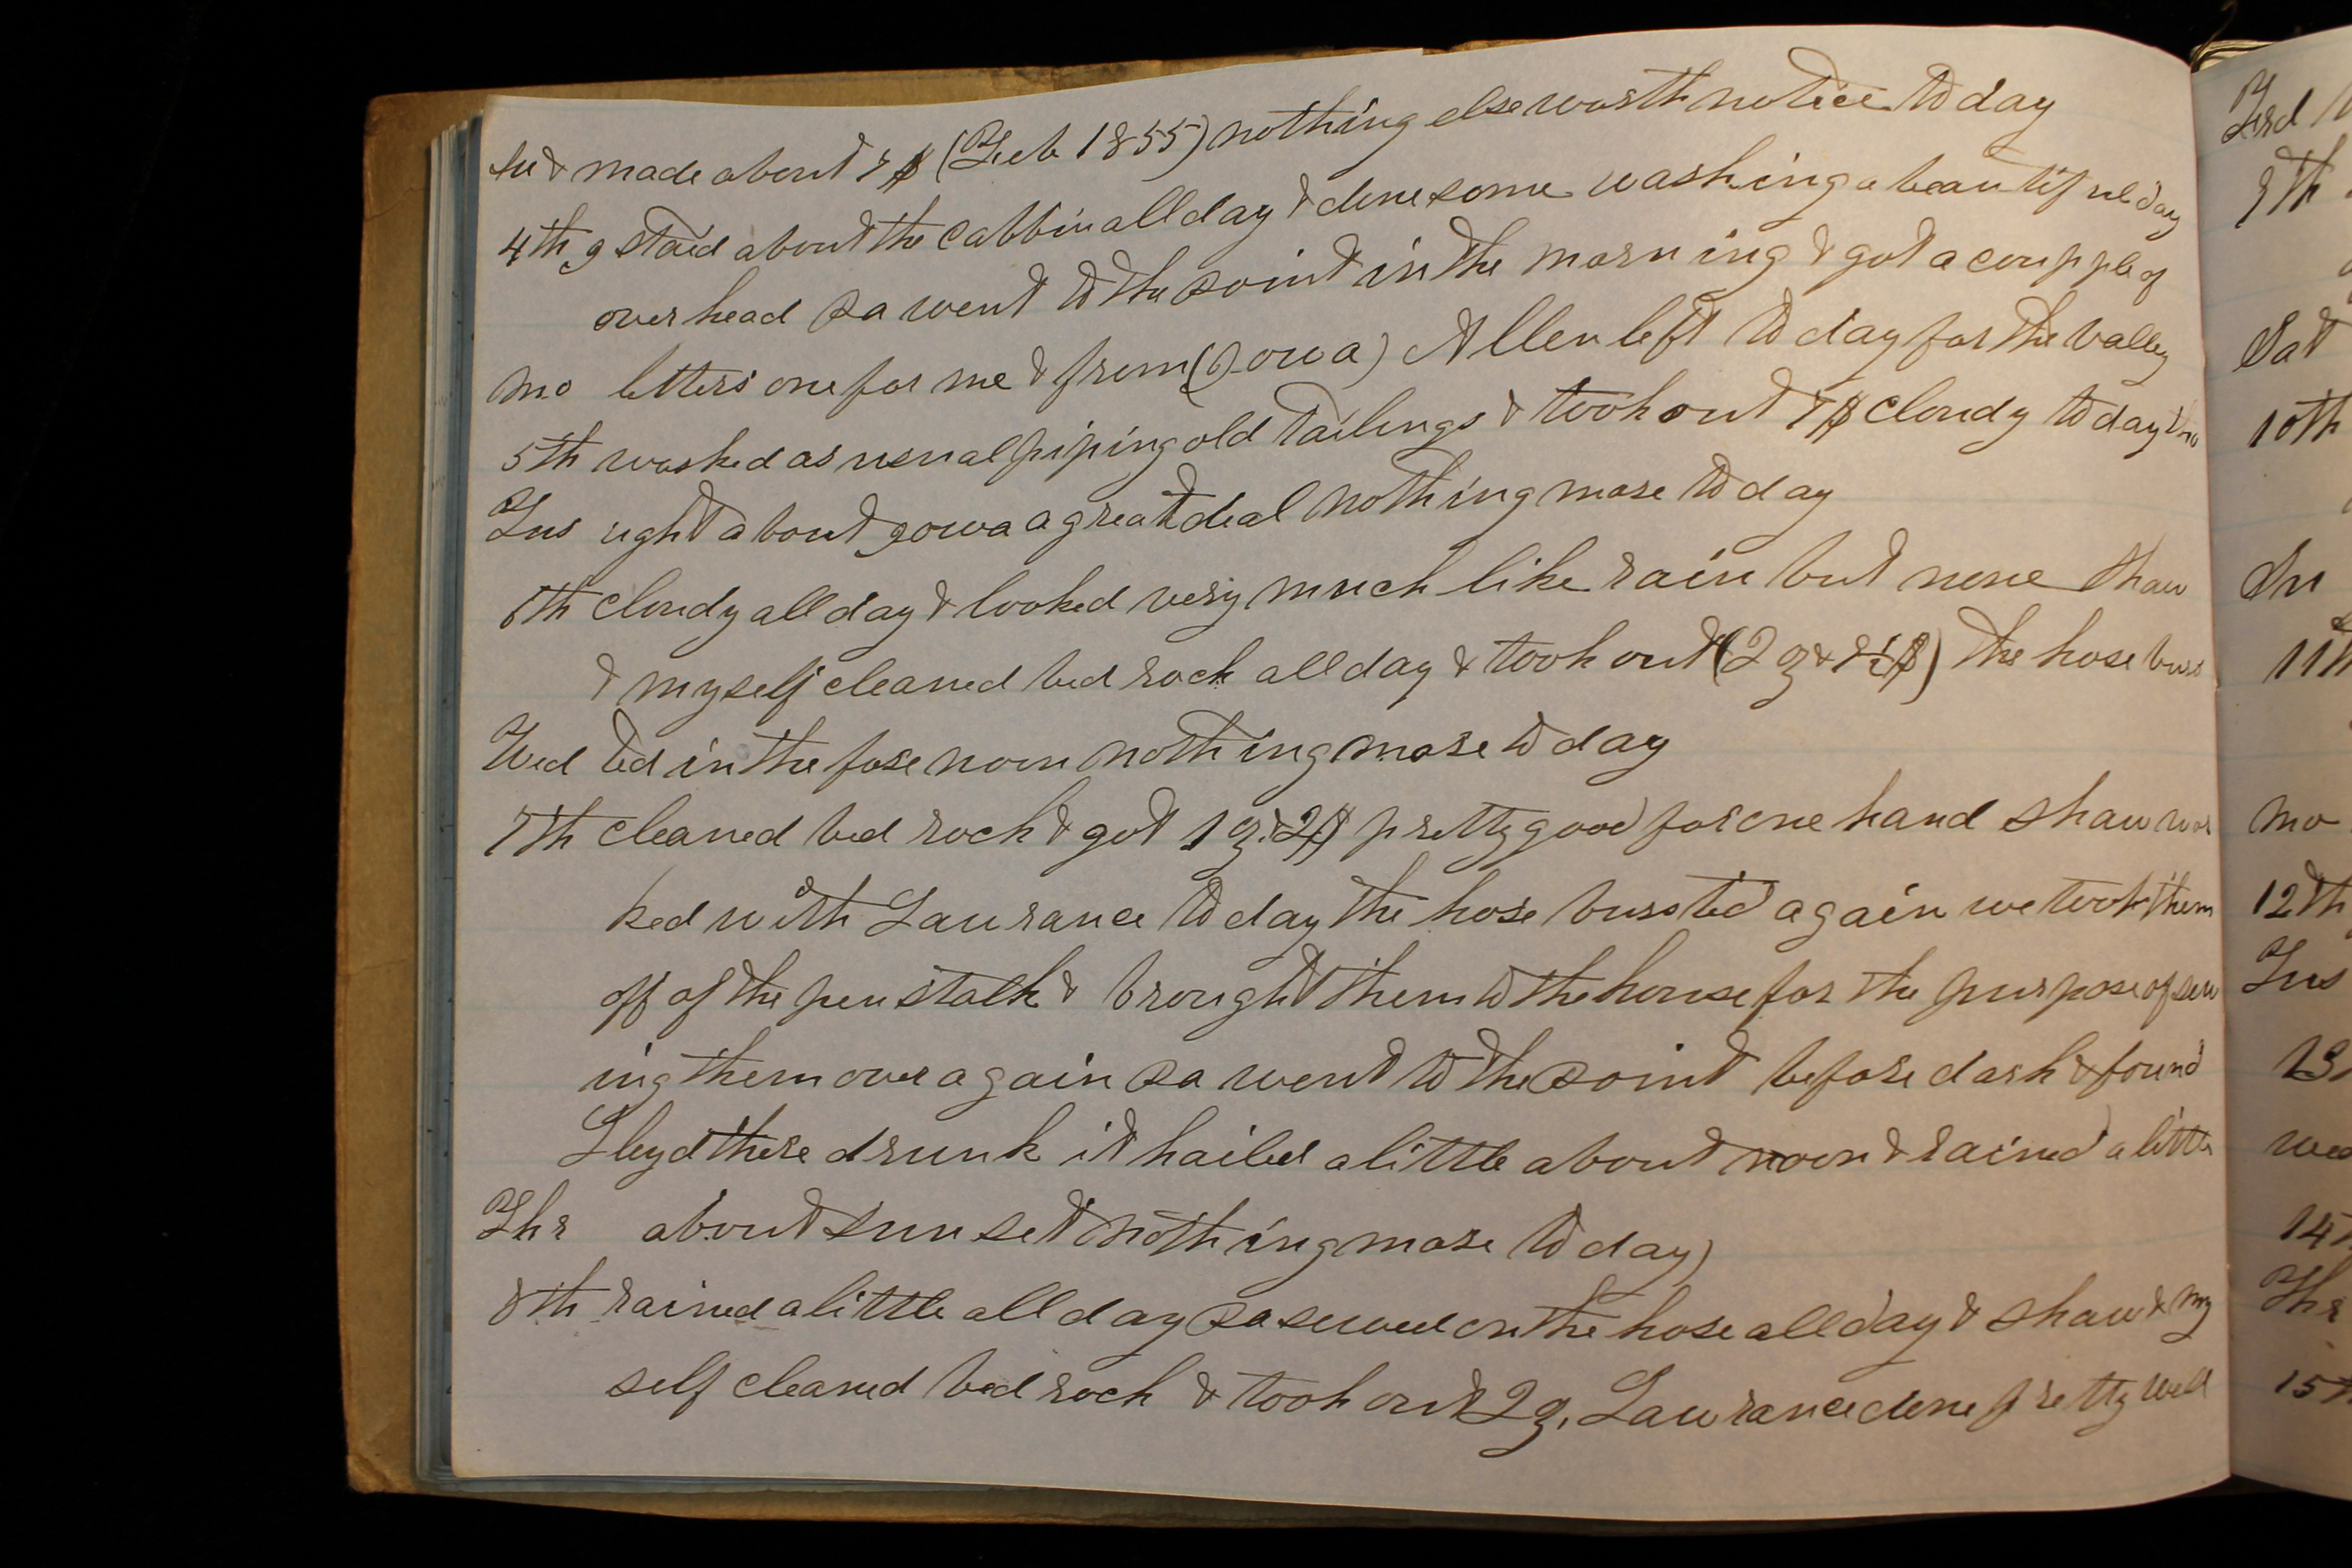 su & made about 7$ (Feb 1855) nothing else worth notice to day
4th I staid about the cabbin all day & done some washing a beautiful day
over head Pa went to the Point in the morning & got a coupple of
mo letters one for me & from (Iowa) Allen left to day for the valley
5th worked as usual piping old tailings & took out 7$ cloudy to day tho
Tus ught about Iowa a great deal nothing more to day
6th cloudy all day & looked very much like rain but none Shaw
& myself cleaned bed rock all day & took out (2 oz & $) the hose burs
Wed ted in the fore noon nothing more to day
7th cleaned bed rock & got 1 oz. 2$ pretty good for one hand Shaw wor
ked with Lawrance to day the hose bursted again we took them
off of the pen stalk & brought them to the house for the purpose of sew
ing them over again Pa went to the Point before dark & found
Lloyd there drunk it hailed a little about noon & rained a little
Thr about sun set nothing more to day
8th rained a little all day Pa sewed on the hose all day & Shaw & my
self cleaned bed rock & took out 2 oz. Lawrance done pretty well
Frd
9th
Sat
10th
Su
11th
mo
12th
Tus
13
wed
14
Thr
15